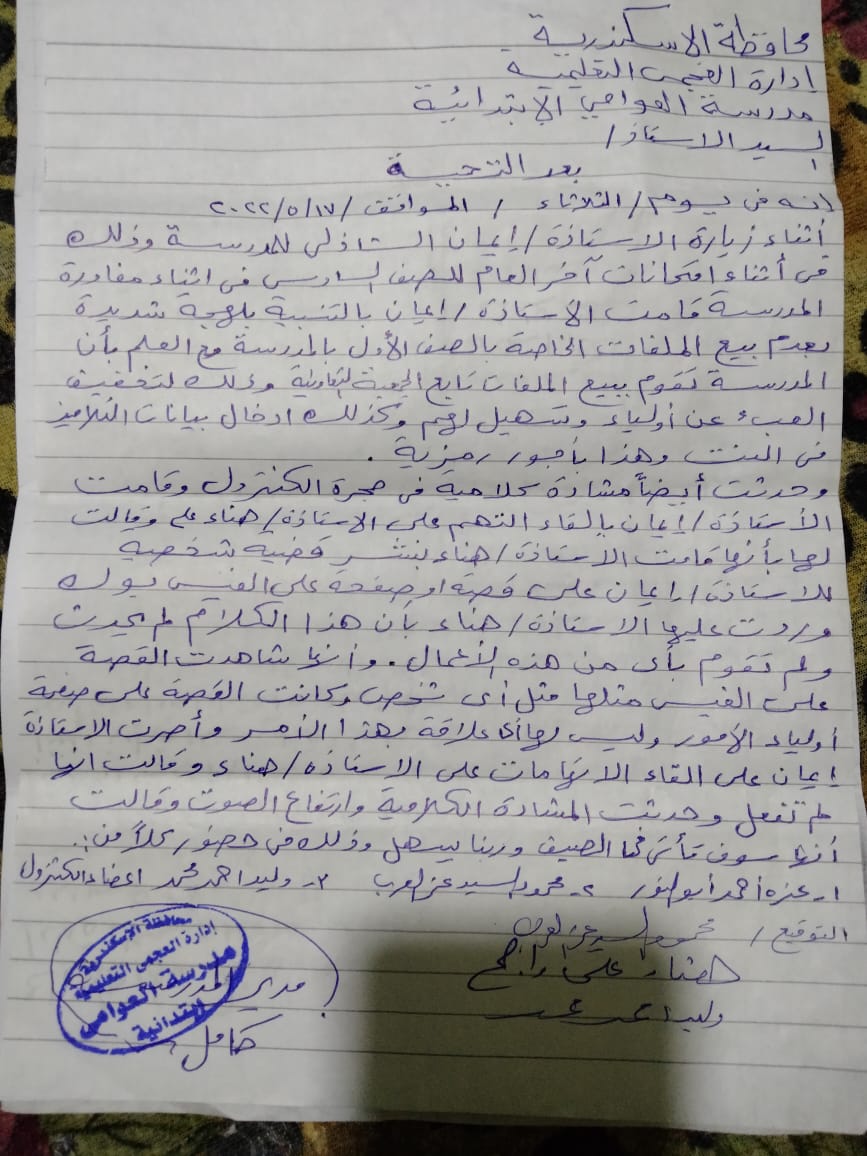 محافظة الاسكندرية
إدارة العجمى التعليمية
مدرسة العوامي الإبتدائية
السيد الاستاذ /
بعد التحية
انه فى يوم / الثلاثاء / الموافق / ٢٠٢٢/٥/١٧
أثناء زيارة الاستاذة / إيمان الشاذلى للمدرسة وذلك
فى أثناء امتحانات آخر العام للصف السادس فى اثناء مغادرة
المدرسة قامت الأستاذة / إيمان بالتنبية بلهجة شديدة
بعدم بيع الملفات الخاصة بالصف الأول بالمدرسة مع العلم بأن
المدرسة تقوم ببيع الملفات تابع الجمعية التعاونية وذلك لتخفيف
العبء عن أولياء وتسهيل لهم وكذلك ادخال بيانات التلاميذ
فى النت وهذا بأجور رمزية .
وحدثت أيضاً مشادة كلامية فى حجرة الكنترول وقامت
الأستاذة / إيمان بإلقاء التهم على الاستاذة / هناء على وقالت
لها بأنها قامت الاستاذة / هناء بنشر قضية شخصية
للاستاذة / إيمان على قصة او صفحة على الفيس بوك
وردت عليها الاستاذة / هناء بأن هذا الكلام لم يحدث
ولم تقوم بأى من هذه الأعمال . وأنها شاهدت القصة
على الفيس مثلها مثل أى شخص وكانت القصة على صفحة
أولياء الأمور وليس لها أى علاقة بهذا الأمر وأصرت الاستاذة
إيمان على القاء الاتهامات على الاستاذه / هناء وقالت انها
لم تفعل وحدثت المشادة الكلامية وارتفاع الصوت وقالت
أنها سوف تأتى فى الصيف وربنا يسهل وذلك فى حضور كلاً من :.
١- عزه أحمد أبو النور ٢- محمود السيد عز العرب ٣- وليد احمد محمد اعضاء الكنترول
التوقيع / محمود السيد عز العرب
هناء على
وليد احمد محمد
مدير المدرسة
كامل
محافظة الإسكندرية
إدارة العجمى التعليمية
مدرسة العوامى
إبتدائية